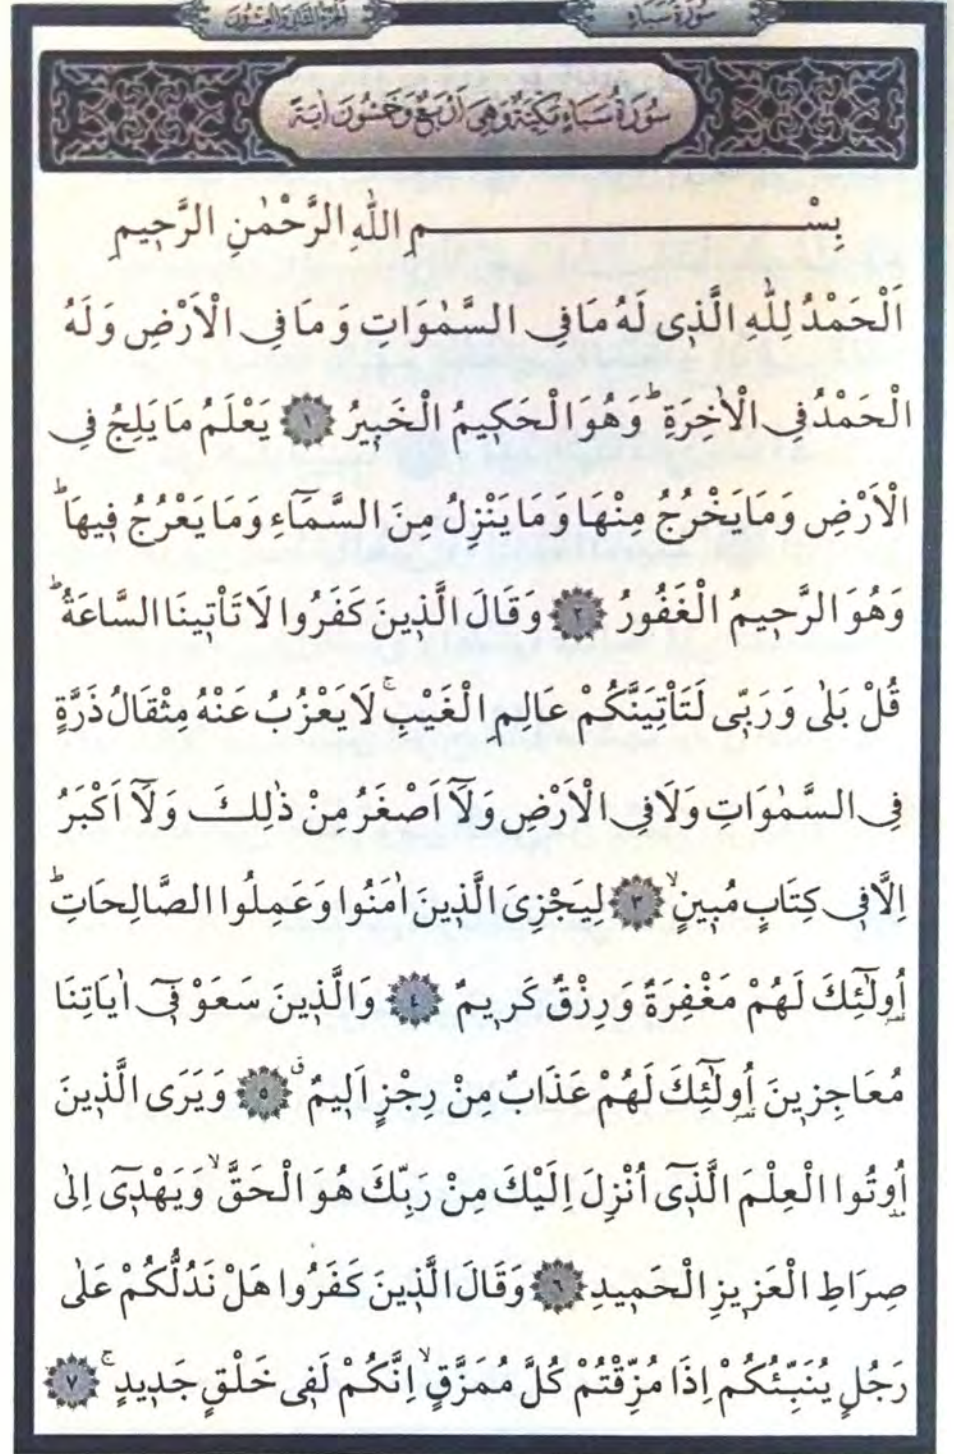 سُورَةُ سَبَأٍ الجزء الثاني والعشرون
سُورَةُ سَبَاءٍ مَكِّيَّةٌ وَهِىَ اَرْبَعٌ وَخَمْسُونَ اٰيَةً
بِسْمِ اللّٰهِ الرَّحْمٰنِ الرَّحٖيمِ
اَلْحَمْدُ لِلّٰهِ الَّذٖى لَهُ مَا فِى السَّمٰوَاتِ وَمَا فِى الْاَرْضِ وَلَهُ
الْحَمْدُ فِى الْاٰخِرَةِؕ وَهُوَ الْحَكٖيمُ الْخَبٖيرُ ﴿١﴾ يَعْلَمُ مَا يَلِجُ فِى
الْاَرْضِ وَمَا يَخْرُجُ مِنْهَا وَمَا يَنْزِلُ مِنَ السَّمَٓاءِ وَمَا يَعْرُجُ فٖيهَاؕ
وَهُوَ الرَّحٖيمُ الْغَفُورُ ﴿٢﴾ وَقَالَ الَّذٖينَ كَفَرُوا لَا تَأْتٖينَا السَّاعَةُؕ
قُلْ بَلٰى وَرَبّٖى لَتَأْتِيَنَّكُمْ عَالِمِ الْغَيْبِۚ لَا يَعْزُبُ عَنْهُ مِثْقَالُ ذَرَّةٍ
فِى السَّمٰوَاتِ وَلَا فِى الْاَرْضِ وَلَٓا اَصْغَرُ مِنْ ذٰلِكَ وَلَٓا اَكْبَرُ
اِلَّا فٖى كِتَابٍ مُبٖينٍۙ ﴿٣﴾ لِيَجْزِىَ الَّذٖينَ اٰمَنُوا وَعَمِلُوا الصَّالِحَاتِؕ
اُو۬لٰٓئِكَ لَهُمْ مَغْفِرَةٌ وَرِزْقٌ كَرٖيمٌ ﴿٤﴾ وَالَّذٖينَ سَعَوْ فٖٓى اٰيَاتِنَا
مُعَاجِزٖينَ اُو۬لٰٓئِكَ لَهُمْ عَذَابٌ مِنْ رِجْزٍ اَلٖيمٌ ق ﴿٥﴾ وَيَرَى الَّذٖينَ
اُو۫تُوا الْعِلْمَ الَّذٖٓى اُنْزِلَ اِلَيْكَ مِنْ رَبِّكَ هُوَ الْحَقَّۙ وَيَهْدٖٓى اِلٰى
صِرَاطِ الْعَزٖيزِ الْحَمٖيدِ ﴿٦﴾ وَقَالَ الَّذٖينَ كَفَرُوا هَلْ نَدُلُّكُمْ عَلٰى
رَجُلٍ يُنَبِّئُكُمْ اِذَا مُزِّقْتُمْ كُلَّ مُمَزَّقٍۙ اِنَّكُمْ لَفٖى خَلْقٍ جَدٖيدٍۚ ﴿٧﴾